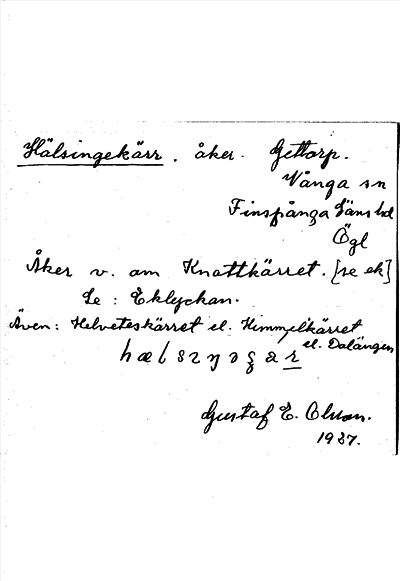 Hälsingekärr. åker. Gettorp.
Vånga sn
Finspånga läns hd
Ögl
Åker v. om Knattkärret. [se ek]
Se: Eklyckan.
Även: Helveteskärret el. Himmelkärret
el. Dalängen
Gustaf E. Olsson.
1937.